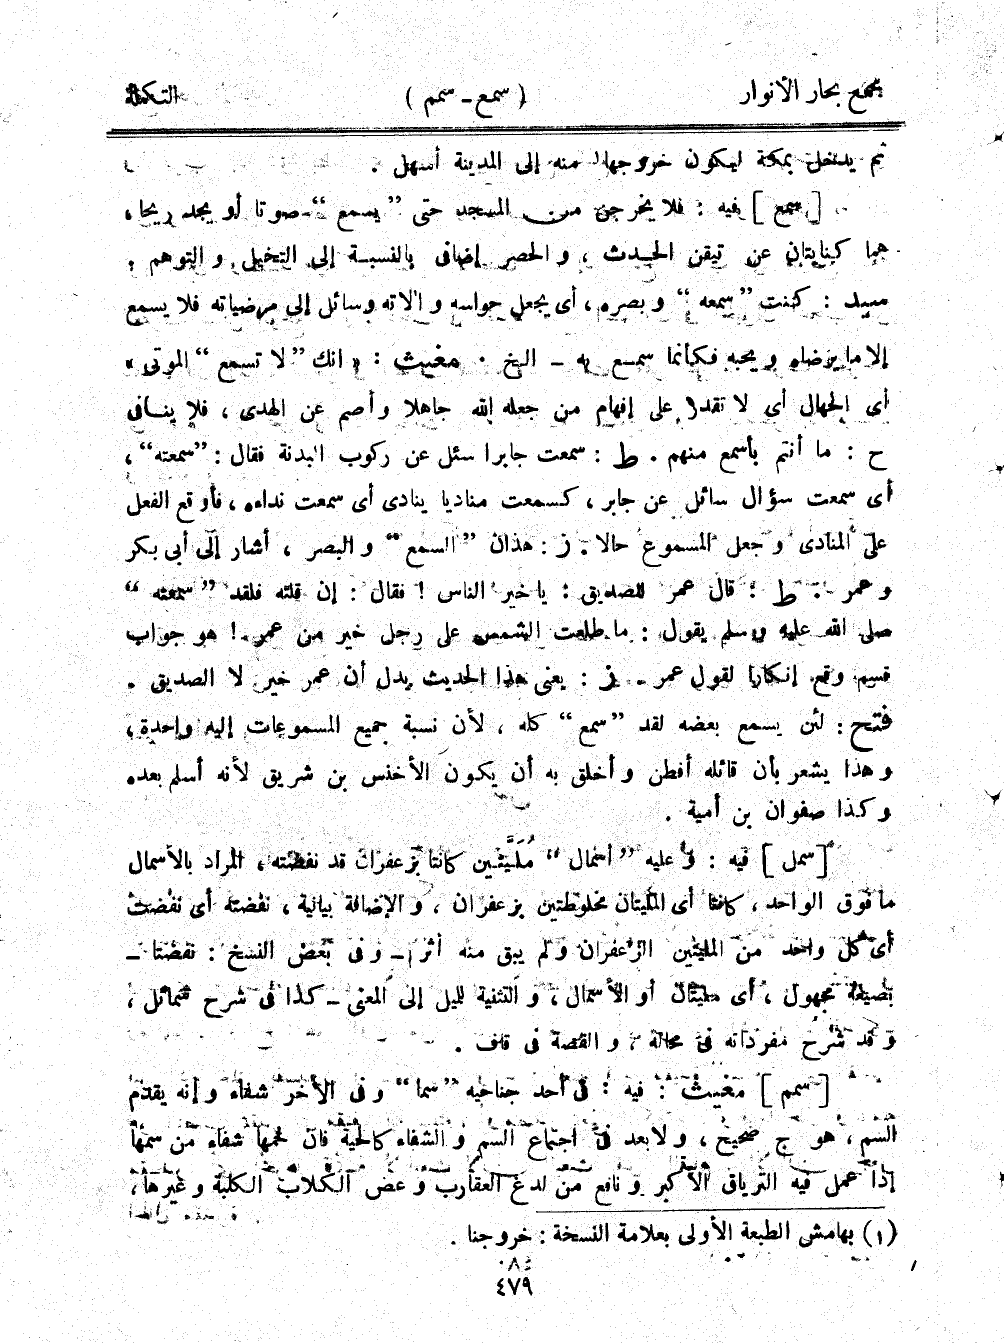 مجمع بحار الأنوار ( سمع - سمم ) التكملة
ثم يدخل بمكة ليكون خروجها منه إلى المدينة أسهل .
[ سمع ] فيه : فلا يخرجن من المسجد حتى ”يسمع“ صوتا أو يجد ريحا ،
هما كنايتان عن تيقن الحدث ، و الحصر إضافى بالنسبة إلى التخيل و التوهم .
سيد : كنت ”سمعه“ و بصره ، أى يجعل حواسه و الاته وسائل إلى مرضياته فلا يسمع
إلا ما يرضاه و يحبه فكأنما سمع به - الخ . مغيث : « انك ”لا تسمع“ الموتى »
أى الجهال أى لا تقدر على إفهام من جعله الله جاهلا و أصم عن الهدى ، فلا ينافى
ح : ما أنتم بأسمع منهم . ط : سمعت جابرا سئل عن ركوب البدنة فقال : ”سمعته“ ،
أى سمعت سؤال سائل عن جابر ، كسمعت مناديا ينادى أى سمعت نداءه ، فأوقع الفعل
على المنادى و جعل المسموع حالا . ز : هذان ”السمع“ و البصر ، أشار إلى أبى بكر
و عمر . ط : قال عمر للصديق : يا خير الناس ! فقال : إن قلته فلقد ”سمعته“
صلى الله عليه وسلم يقول : ما طلعت الشمس على رجل خير من عمر ! هو جواب
قسم وقع إنكارا لقول عمر - ز : يعنى هذا الحديث يدل أن عمر خير لا الصديق .
فتح : لئن يسمع بعضه لقد ”سمع“ كله ، لأن نسبة جميع المسموعات إليه واحدة ،
و هذا يشعر بأن قائله أفطن و أخلق به أن يكون الأخنس بن شريق لأنه أسلم بعده
و كذا صفوان بن أمية .
[ سمل ] فيه : و عليه ”أسمال“ مُلَيَّتين كانتا بزعفران قد نفضته ، المراد بالأسمال
ما فوق الواحد ، كانتا أى المليتان مخلوطتين بزعفران ، و الإضافة بيانية ، نفضته أى نفضت
أى كل واحد من المليتين الزعفران و لم يبق منه أثر - و فى بعض النسخ : نفضتا -
بصيغة مجهول ، أى مليتان أو الأسمال ، و التثنية للميل إلى المعنى - كذا فى شرح شمائل ،
و قد شرح مفرداته فى محاله ، و القصة فى قلف .
[ سمم ] مغيث : فيه : فى أحد جناحيه ”سما“ و فى الأخر شفاء و إنه يقدم
السم ، هو ح صحيح ، و لا بعد فى اجتماع السم و الشفاء كالحية فان لحمها شفاء من سمها
إذا عمل فيه الترياق الأكبر و نافع من لدغ العقارب و عض الكلاب الكلبة و غيرها ،
(١) بهامش الطبعة الأولى بعلامة النسخة : خروجنا .
٤٧٩